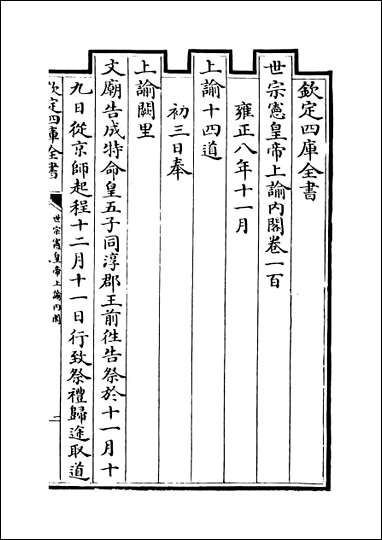 欽定四庫全書
世宗憲皇帝上諭內閣卷一百
雍正八年十一月
上諭十四道
初三日奉
上諭闕里
文廟告成特命皇五子同淳郡王前徃告祭於十一月十
九日從京師起程十二月十一日行致祭禮歸途取道
欽定四庫全書
世宗憲皇帝上諭內閣